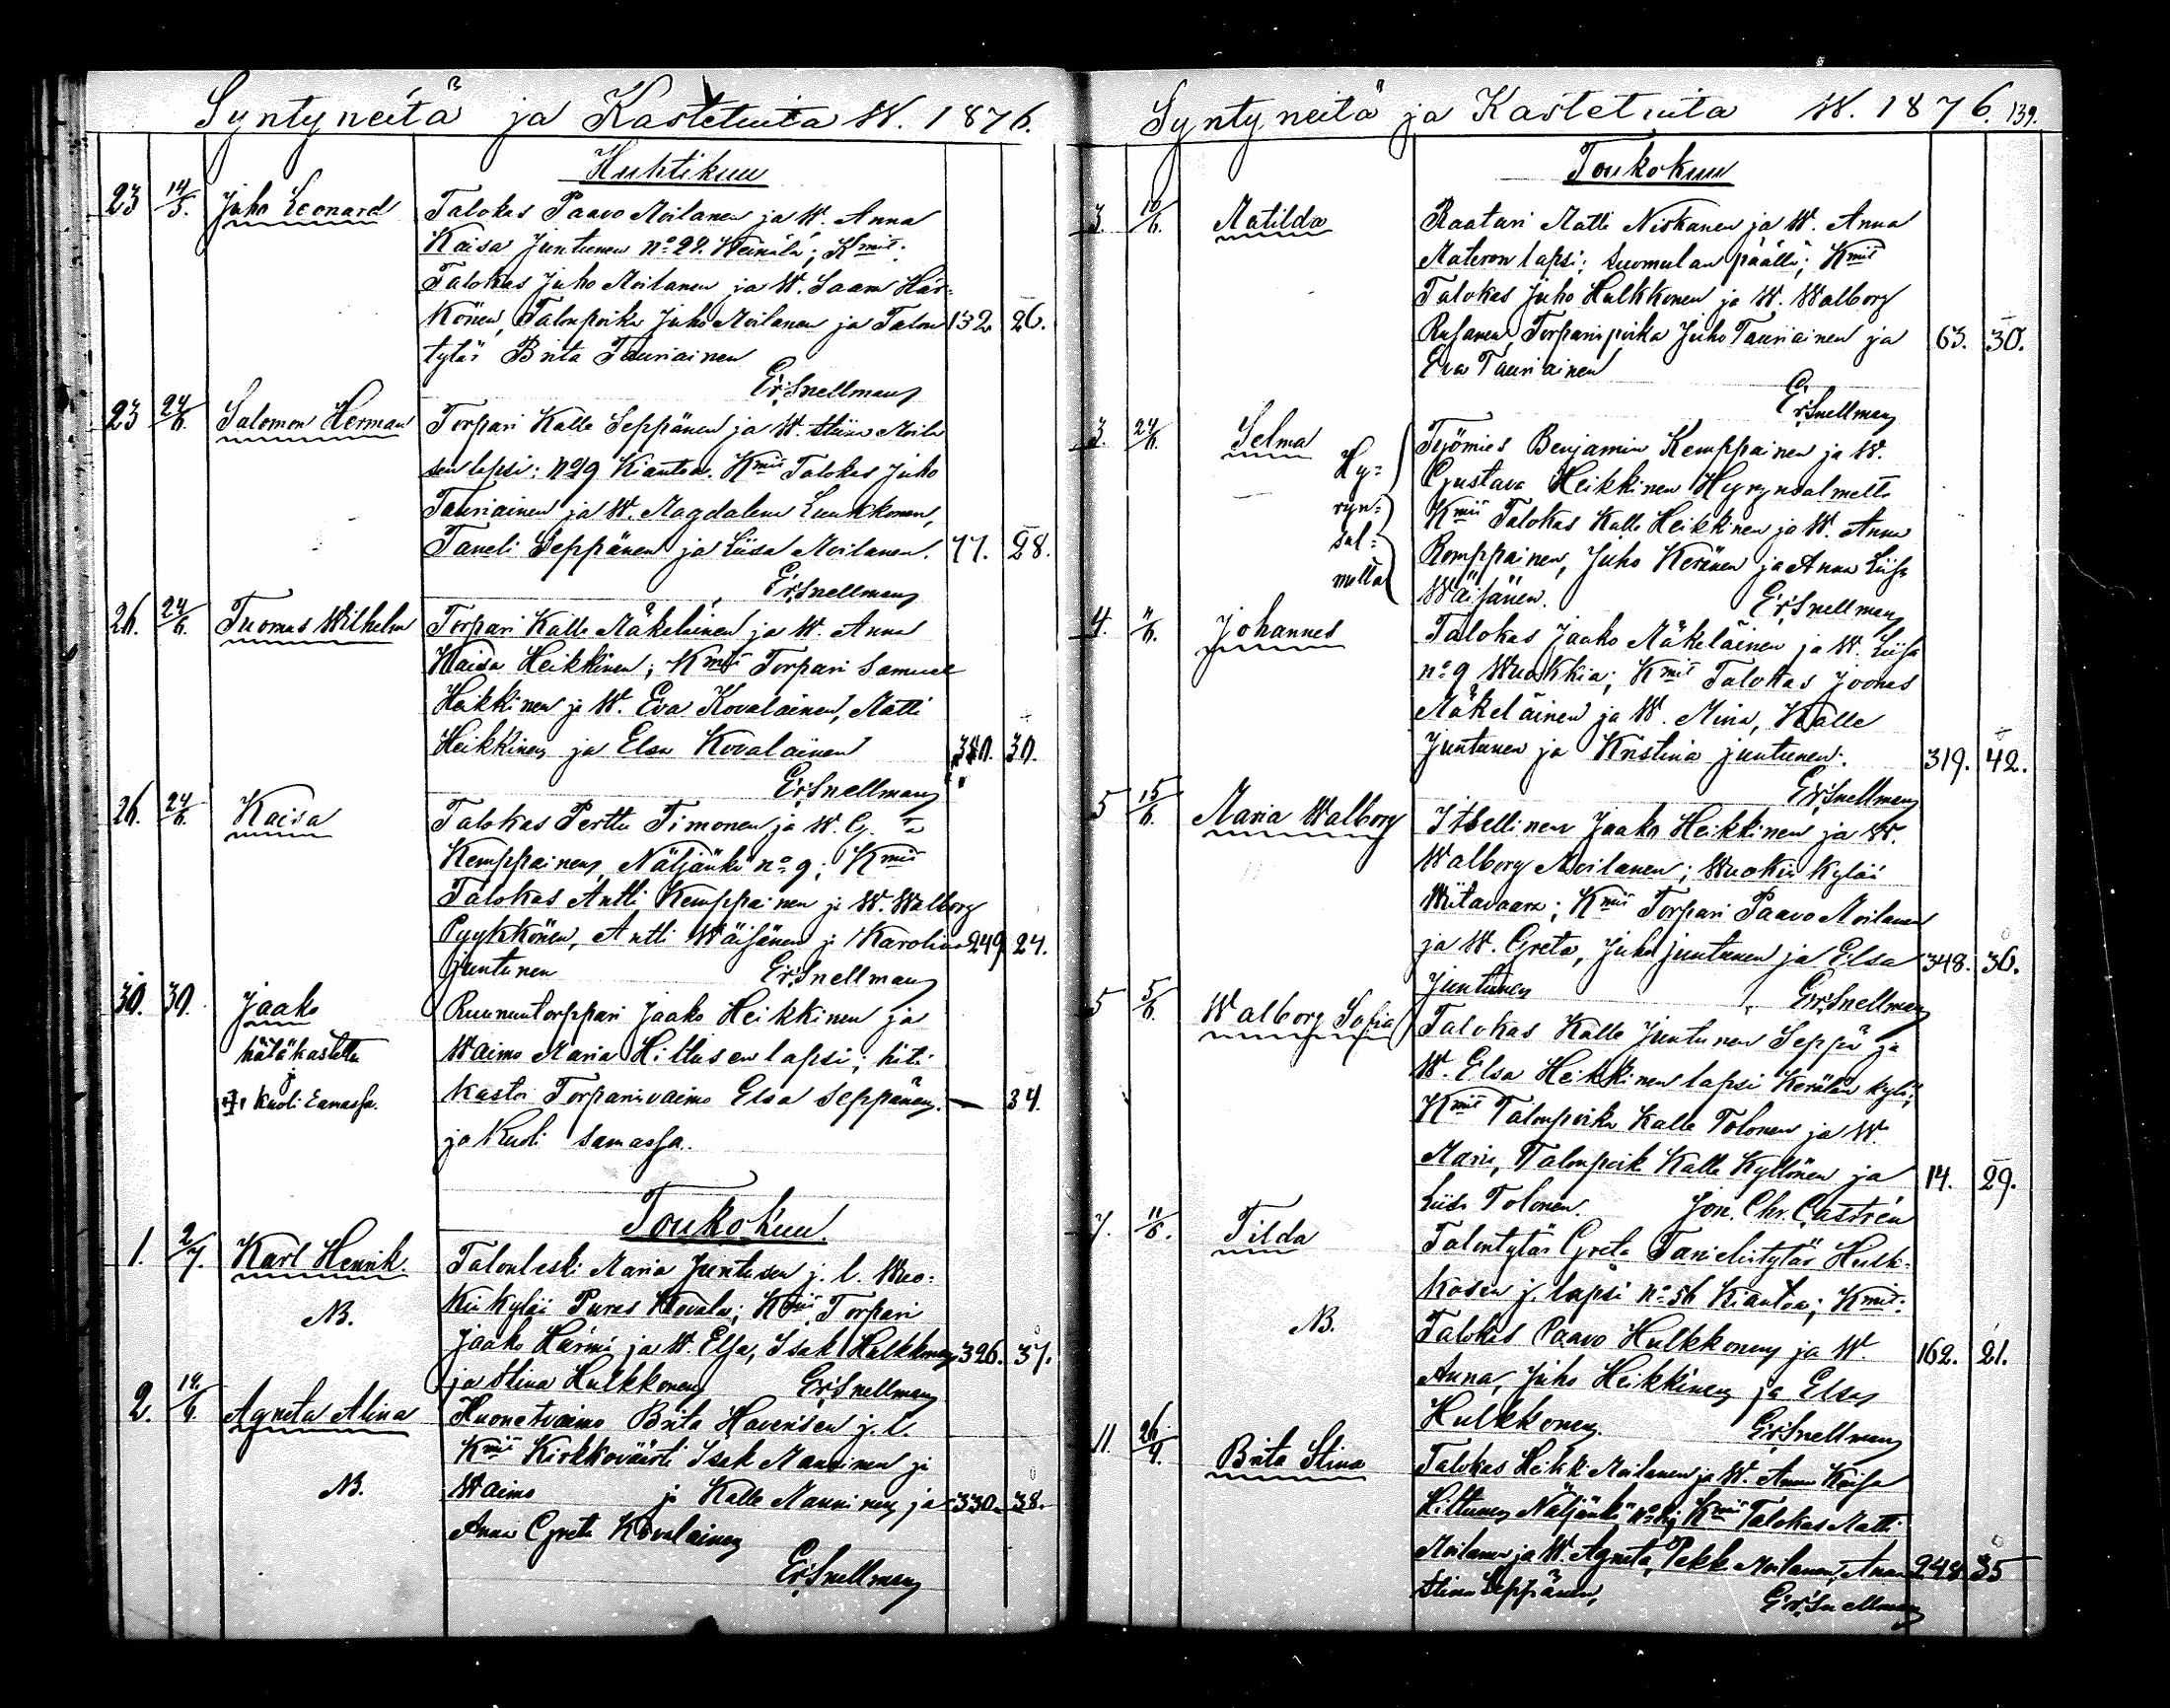 Syntyneitä ja Kastetuita W. 1876.
Huhtikuu
23 14/5. Juho Leonard Talokas Paavo Moilanen ja W. Anna
Kaisa Juntunen No 22. ; Kmit:
Talokas Juho Moilanen ja W. Saara Här-
könen, Talonpoika Juho Moilanen ja Talon 132 26.
tytär Brita Tauriainen
Er. Snellman
23 24/6. Salomon Herman Torpari Kalle Seppänen ja W. Stiina Moila
sen lapsi: No 19 Kianta. Kmit Talokas Juho
Tauriainen ja W. Magdalena Luukkonen,
Taneli Seppänen ja Liisa Moilanen. 77. 28.
Er. Snellman
26. 24/6. Tuomas Wilhelm Torpari Kalle Mäkeläinen ja W. Anna
Kaisa Heikkinen; Kmit Torpari Samuel
Heikkinen ja W. Eva Kovalainen, Matti
Heikkinen ja Elsa Kovalainen 30.
Er. Snellman
26. 24/6. Kaisa Talokas Perttu Timonen ja W.
Kemppainen, Näljänkä no 9; Kmit
Talokas Antti Kemppainen ja W. Walborg
Pyykkönen, Antti Wäisänen ja Karolina 249 24.
Juntunen Er. Snellman
30. 30. Jaako Ruununtorppari Jaako Heikkinen ja
hätäkastettu Waimo Maria Hiltusen lapsi; häti
ja kuoli samassa. kasti Torparivaimo Elsa Seppänen. — 34.
ja kuoli samassa.
Toukokuu.
1. 2/7. Karl Henrik. Talonleski Maria Juntusen j. l. Wuo-
NB. kin kylää Puras ; Kmit Torpari
Jaako Härmä ja W. Elsa, Isak Hulkkonen 326. 37.
ja Stina Hulkkonen Er. Snellman
2. 14/6. Agneta Alina Huonetvaimo Brita j. l.
Kmit Kirkkoväärti Isak Manninen ja
NB. Waimo ja Kalle Manninen ja 330. 38.
Anna Greta Kovalainen
Er. Snellman
Syntyneitä ja Kastetuita W. 1876. 139.
Toukokuu
3. 10/6. Matilda Raatari Matti Niskanen ja W. Anna
Materon lapsi; Suomulan päällä; Kmit
Talokas Juho Hulkkonen ja W. Walborg
Rusanen, Torparipoika Juho Tauriainen ja 63. 30.
Eva Tauriainen
Er. Snellman
3. 24/6. Selma Työmies Benjamin Kemppainen ja W.
Hy- Gustava Heikkinen Hyrynsalmelta
ryn- Kmit Talokas Kalle Heikkinen ja W. Anna
sal- Romppainen, Juho Keränen ja Anna Liisa
mella Wäisänen. Er. Snellman
4. 11/6. Johannes Talokas Jaako Mäkeläinen ja W. Liisa
no 9 Wuokkia; Kmit Talokas Joonas
Mäkeläinen ja W. Mina, Kalle
Juntunen ja Kristina Juntunen. 319. 42.
Er. Snellman
5 15/6. Maria Walborg Itsellinen Jaako Heikkinen ja W.
Walborg Moilanen; Wuokin kylää
Wiitavaara; Kmit Torpari Paavo Moilanen
ja W. Greta, Juho Juntunen ja Elsa 348. 36.
Juntunen Er. Snellman
5 5/6. Walborg Sofia Talokas Kalle Juntunen Seppä ja
W. Elsa Heikkinen lapsi Kerälän kylä;
Kmit Talonpoika Kalle Tolonen ja W.
Maria, Talonpoika Kalle Kyllönen ja 14. 29.
Liisa Tolonen. Jon. Chr. Castrén
7. 11/6. Tilda Talontytär Greta Tanielintytär Hulk-
kosen j. lapsi no 56 Kianta; Kmit:
NB. Talokas Paavo Hulkkonen ja W. 162. 21.
Anna, Juho Heikkinen ja Elsa
Hulkkonen. Er. Snellman
11. 26/9. Brita Stina Talokas Heikki Moilanen ja W. Anna Kaisa
Hiltunen Näljänkä Kmit Talokas Matti
Moilanen ja W. Agneta, Pekka Moilanen, Anna 248 35
Stina Seppänen, Er. Snellman